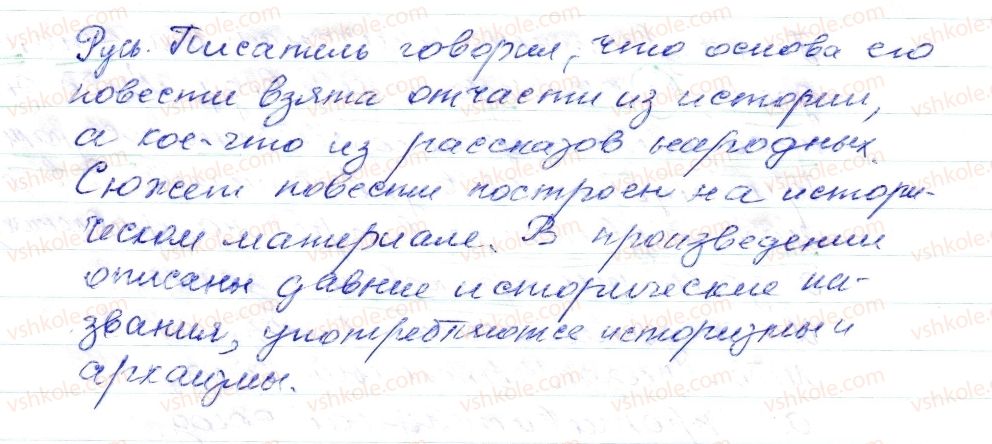 Русь. Писатель говорил, что основа его
повести взята отчасти из истории,
а кое-что из рассказов народных.
Сюжет повести построен на истори-
ческом материале. В произведении
описаны давние исторические на-
звания, употребляются историзмы и
архаизмы.